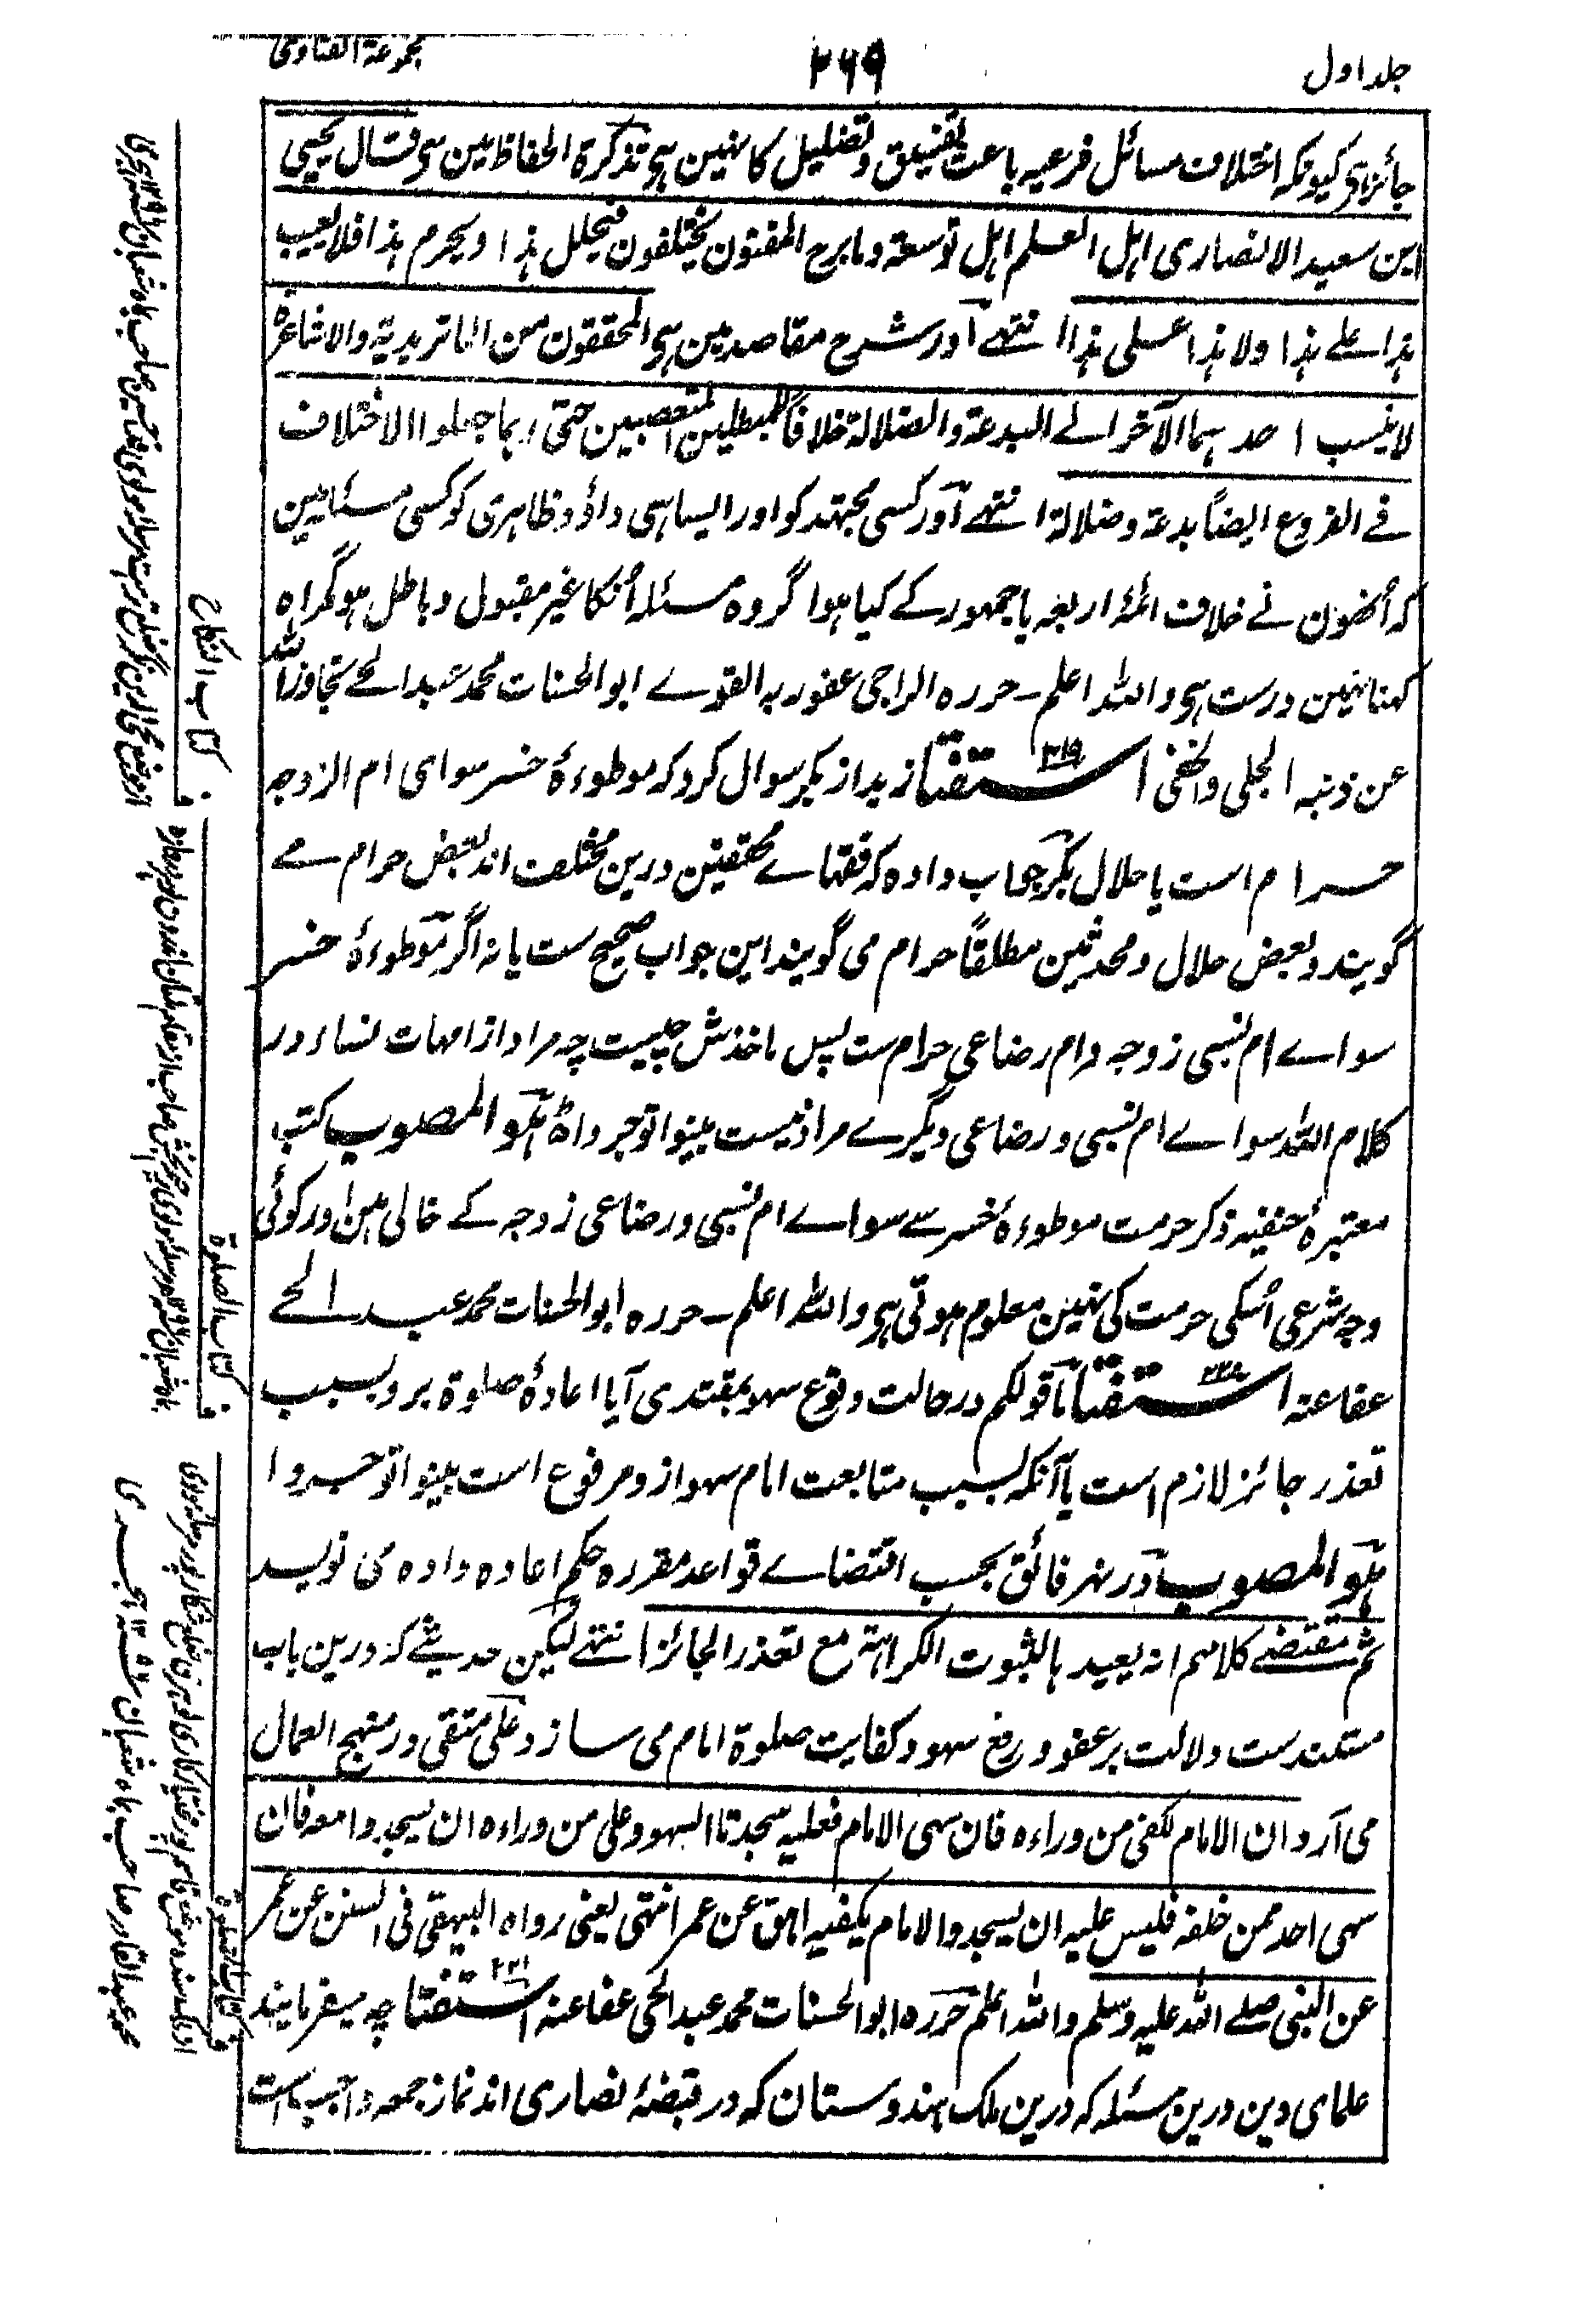 جلد اول
۲۶۹
مجموعة الفتاوی
جائز ہی کیونکہ اختلاف مسائل فرعیہ باعث تفسیق و تضلیل کا نہین ہی تذکرة الحفاظ مین ہی قال یحیی
ابن سعید الانصاری اہل العلم اہل توسعة وما برح المفتون یختلفون فیحلل ہذا ویحرم ہذا فلا یعیب
ہذا علے ہذا ولا ہذا علی ہذا انتہے اور شرح مقاصد مین ہی المحققون من الماتریدیة والاشاعرة
لا ینسب احدہما الآخر الے البدعة والضلالة خلافاً للمبطلین المتعصبین حتی ربما جعلوا الاختلاف
فے الفروع ایضاً بدعة وضلالة انتہے اور کسی مجتہد کو اور ایسا ہی داؤد ظاہری کو کسی مسئلہ مین
کہ اُنھون نے خلاف ائمۂ اربعہ یا جمہور کے کیا ہوا گر وہ مسئلہ اُنکا غیر مقبول و باطل ہو گمراہ
کہنا نہین درست ہی واللہ اعلم۔ حررہ الراجی عفو ربہ القوے ابو الحسنات محمد عبد الحے تجاوز اللہ
عن ذنبہ الجلی والخفی استفتا ۳۱۹ زید از بکر سوال کرد کہ موطوءۂ خسر سوای ام الزوجہ
حرام است یا حلال بکر جواب داد کہ فقہاے محققین درین مختلف اند بعض حرام مے
گویند و بعض حلال و محدثین مطلقاً حرام می گویند این جواب صحیح ست یا نہ اگر موطوءۂ خسر
سواے ام نسبی زوجہ و ام رضاعی حرام ست پس ماخذش چیست چہ مراد از امہات نساء در
کلام اللہ سواے ام نسبی و رضاعی دیگرے مراد نیست بینوا توجروا ہو المصوب کتب
معتبرۂ حنفیہ ذکر حرمت موطوءۂ خسر سے سواے ام نسبی و رضاعی زوجہ کے خالی ہین اور کوئی
وجہ شرعی اُسکی حرمت کی نہین معلوم ہوتی ہی واللہ اعلم۔ حررہ ابو الحسنات محمد عبد الحے
عفا عنہ استفتا ما قولکم در حالت وقوع سہو بمقتدی آیا اعادۂ صلوة برو بسبب
تعذر جائز لازم است یا آنکہ بسبب متابعت امام سہو ازو مرفوع است بینوا توجروا
ہو المصوب در نہر فائق بحسب اقتضاے قواعد مقررہ حکم اعادہ دادہ می نویسد
ثم مقتضے کلامہم انہ یعیدہا لثبوت الکراہة مع تعذر الجائز انتہے لیکن حدیثے کہ درین باب
مستندست دلالت بر عفو و رفع سہو و کفایت صلوة امام می سازد علی متقی در منہج العمال
می آرد ان الامام یکفی من وراءہ فان سہی الامام فعلیہ سجدتا السہو وعلی من وراءہ ان یسجدوا معہ فان
سہی احد ممن خلفہ فلیس علیہ ان یسجد والامام یکفیہ ہق عن عمر انتہی یعنی رواہ البیہقی فی السنن عن عمر
عن النبی صلے اللہ علیہ وسلم واللہ اعلم حررہ ابو الحسنات محمد عبد الحی عفا عنہ استفتا ۲۲۱ چہ میفرمایند
علمای دین درین مسئلہ کہ درین ملک ہندوستان کہ در قبضۂ نصاری اند نماز جمعہ واجب است
کتاب النکاح
کتاب الصلوة
کتاب الصلوة